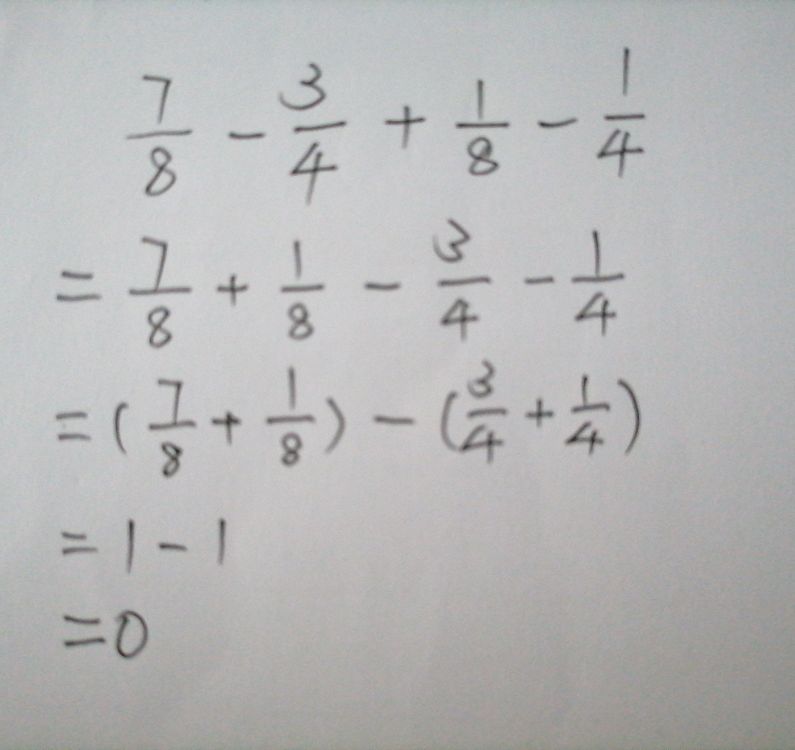 7/8 - 3/4 + 1/8 - 1/4
= 7/8 + 1/8 - 3/4 - 1/4
= (7/8 + 1/8) - (3/4 + 1/4)
= 1 - 1
= 0